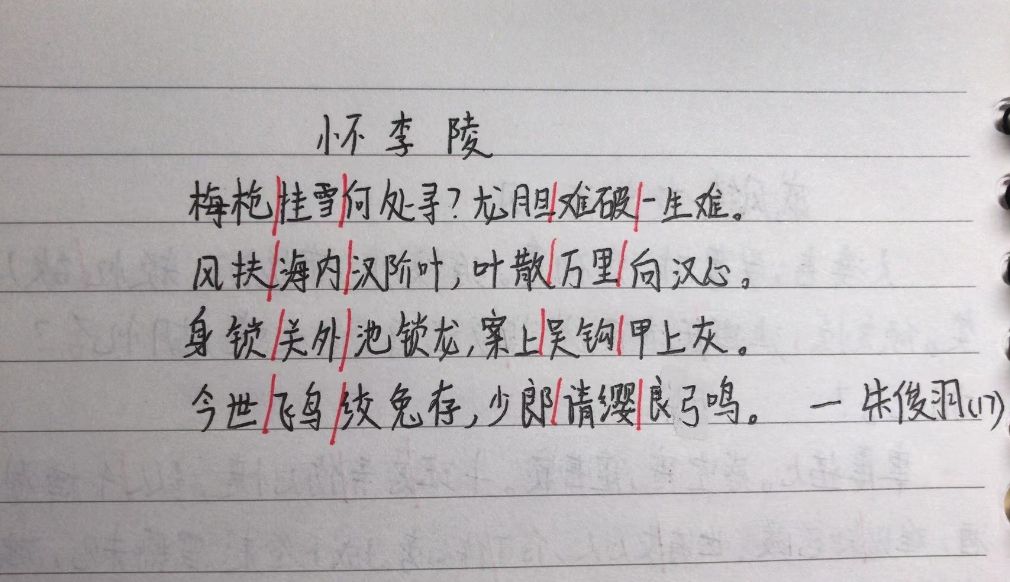 怀李陵
梅枪挂雪何处寻?龙胆难破一生难。
风扶海内汉阶叶,叶散万里向汉心。
身锁关外池锁龙,案上吴钩甲上灰。
今世飞鸟绞兔存,少郎请缨良弓鸣。 — 朱俊羽(17)